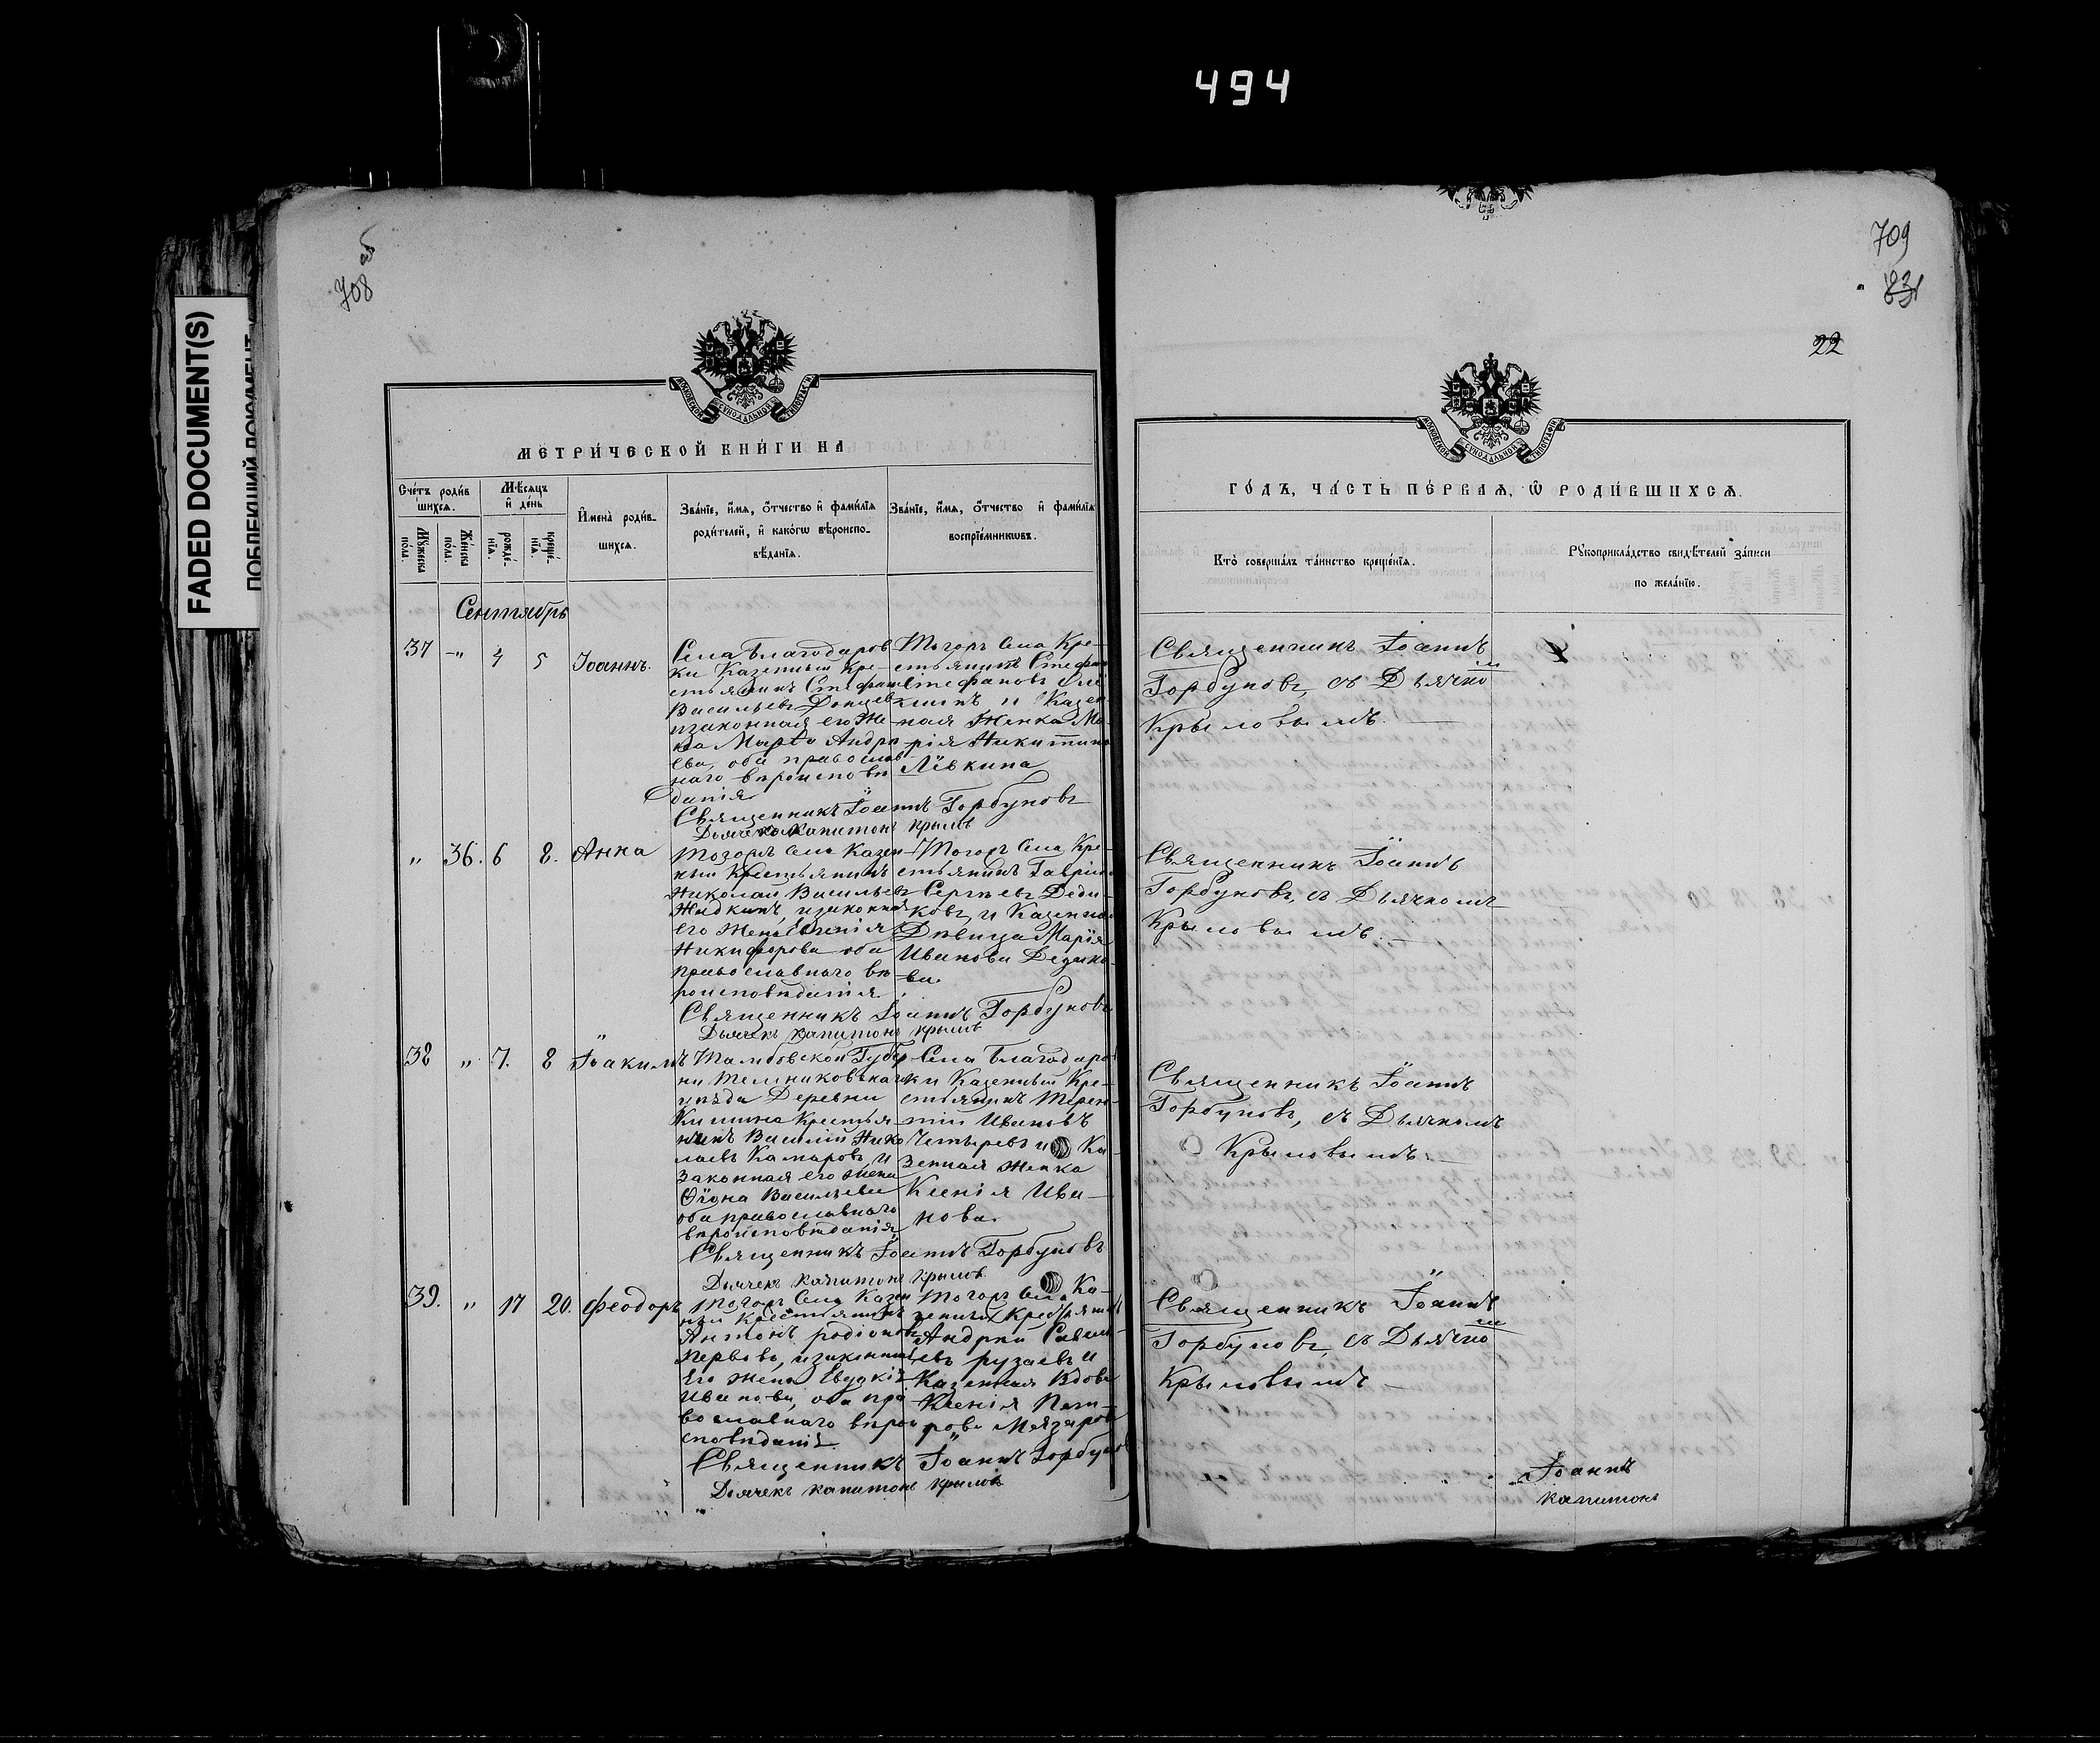 494
FADED DOCUMENT(S)
708 об
709
22
МОСКОВСКОЙ СѴНОДАЛЬНОЙ ТИПОГРАФІИ
МЕТРИ́ЧЕСКОЙ КНИ́ГИ НА
Сче́тъ роди́вшихсѧ.
Мѣ́сѧцъ и҆ де́нь
И҆мена̀ роди́вшихсѧ.
Зва́нїе, и҆́мѧ, ѻ҆́тчество и҆ фами́лїѧ
роди́телей, и҆ како́гѡ вѣроиспо-
вѣ́данїѧ.
Зва́нїе, и҆́мѧ, ѻ҆́тчество и҆ фами́лїѧ
воспрїе́мникѡвъ.
Мꙋ́жеска по́ла.
Же́нска по́ла.
рожде́нїѧ.
креще́нїѧ.
Сентябрь
37 -" 4 5 Іоаннъ.
Села Благодаров
ки Казенный Кре-
стьянинъ Стефанъ
Васильевъ Донцевъ
и законная его Же
на Марѳа Андре
ева, оба православ
наго вѣроисповѣ
данія
Тогожъ Села Кре-
стьянинъ Стефан
Стефановъ
и Казен
ная Женка Ма-
рія Никитина
Лёвкина
Священникъ Іоаннъ Горбуновъ
Дьячекъ Капитонъ Крыловъ
" 36. 6 8. Анна
Тогожъ Села Казен
ный Крестьянинъ
Николай Васильевъ
Жидкинъ, и законная
его Жена
Никифорова оба
православнаго вѣ
роисповѣданія
Тогожъ Села Кре-
стьянинъ Гавріил
Сергѣевъ Деди-
ковъ и Казенная
Дѣвица Марія
Иванова Дедико-
ва
Священникъ Іоаннъ Горбуновъ
Дьячекъ Капитонъ Крыловъ
38 " 7. 8 Іоакимъ
Тамбовской Губер
ни Темниковскаго
уѣзда Деревни
Крестья
нинъ Василій Нико
лаевъ Камаровъ, и
законная его жена
Васильева
оба православнаго
вѣроисповѣданія
Села Благодаров
ки Казенный Кре-
стьянинъ Терен-
тій Ивановъ
Четыревъ и Ка-
зенная женка
Ксенія Ива-
нова.
Священникъ Іоаннъ Горбуновъ
Дьячекъ Капитонъ Крыловъ
39. " 17 20. Феодоръ
Тогожъ Села Казен
ный Крестьянинъ
Антонъ Родіоновъ
Перво въ, и законная
его жена Евдокія
Иванова, оба пра
вославнаго вѣрои
сповѣданія
Тогожъ Села Ка-
зенный Крестьянинъ
Андрей Савель-
евъ рузаевъ и
Казенная Вдова
Ксенія Пет-
рова
Священникъ Іоаннъ Горбуновъ
Дьячекъ Капитонъ Крыловъ
ГО́ДЪ, ЧА́СТЬ ПЕ́РВАѦ, Ѡ҆ РОДИ́ВШИХСѦ.
Кто̀ соверша́лъ та́инство креще́нїѧ.
Рꙋкоприкла́дство свидѣ́телей за́писи
по жела́нїю.
Священникъ Іоаннъ
Горбуновъ, съ Дьячкомъ
Крыловымъ.
Священникъ Іоаннъ
Горбуновъ, съ Дьячкомъ
Крыловымъ.
Священникъ Іоаннъ
Горбуновъ, съ Дьячкомъ
Крыловымъ.
Священникъ Іоаннъ
Горбуновъ, съ Дьячкомъ
Крыловымъ
Іоаннъ
Капитонъ